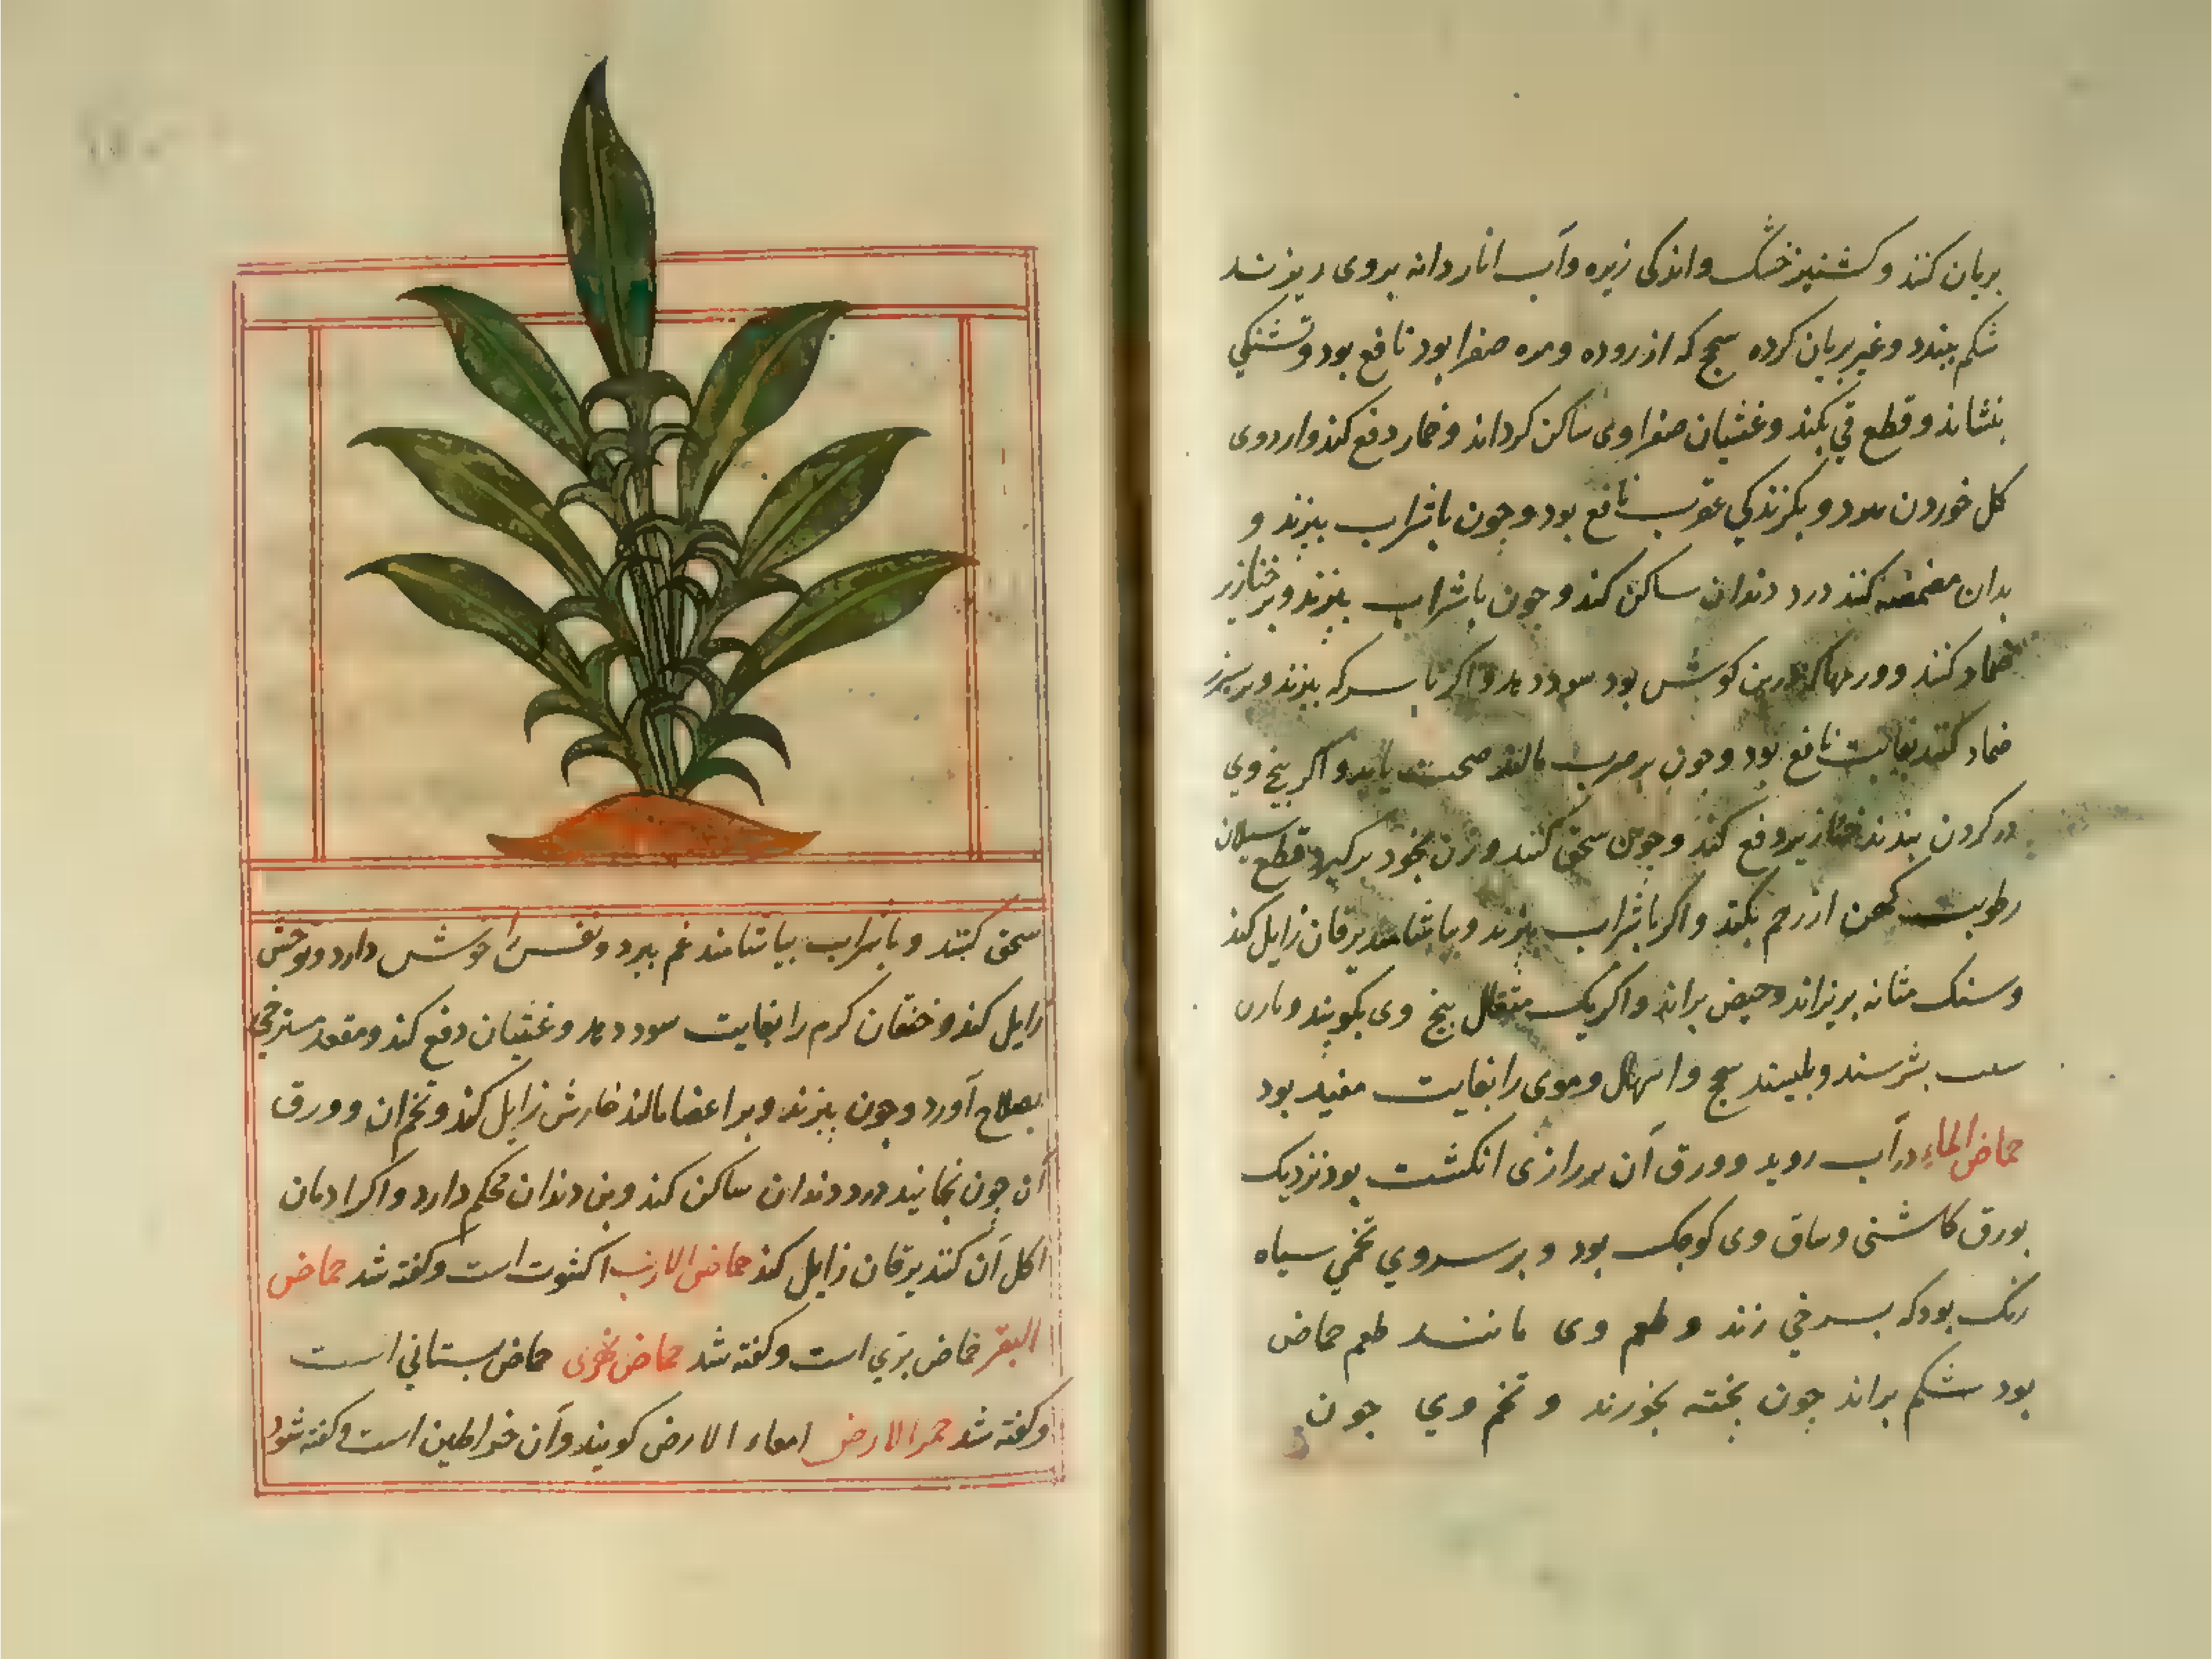 بریان کنند و کشنیز خشک و اندکی زیره و آب انار دانه بروی ریزند
شکم ببندد و غیر بریان کرده سحج که از روده و مره صفرا بود نافع بود و تشنکی
بنشاند و قطع قی بکند و غثیان صفراوی ساکن کرداند و خمار دفع کند و ارزوی
کل خوردن ببرد و بکزندکی عقرب نافع بود و جون با شراب بپزند و
بدان مضمضه کنند درد دندان ساکن کند و جون با شراب بپزند و بر خنازیر
ضماد کنند و ورمها که در بن کوش بود سود دهد و اکر با سرکه بپزند و بر سپرز
ضماد کنند بغایت نافع بود و جون بر جرب مالند صحت یابد و اکر بیخ وی
در کردن بندند خنازیر دفع کند و جون سحق کنند و زن بخود برکیرد قطع سیلان
رطوبت کهن از رحم بکند و اکر با شراب بپزند و بیاشامند یرقان زایل کند
و سنک مثانه بریزاند و حیض براند و اکر یک مثقال بیخ وی بکوبند و بارب
بشرسند و بلیسند سحج و اسهال دموی را بغایت مفید بود
حماض الماء در آب روید و ورق آن بدرازی انکشت بود نزدیک
بورق کاشنی و ساق وی کوجک بود و بر سر وی تخمی سیاه
رنک بود که بسرخی زند و طعم وی مانند طعم حماض
بود شکم براند جون بخته بخورند و تخم وی جون
سحق کنند و با شراب بیاشامند غم ببرد و نفس را خوش دارد و توحش
زایل کند و خفقان کرم را بغایت سود دهد و غثیان دفع کند و مقعد مسترخی
بصلاح آورد و جون بپزند و بر اعضا مالند خارش زایل کند و تخم ان و ورق
آن جون بخایند درد دندان ساکن کند و بن دندان محکم دارد و اکر ادمان
اکل آن کنند یرقان زایل کند حماض الارنب اکشوث است و کفته شد حماض
البقر حماض بری است و کفته شد حماض حماض بستانی است
و کفته شد حمر الارض امعاء الارض کویند و آن خراطین است و کفته شود